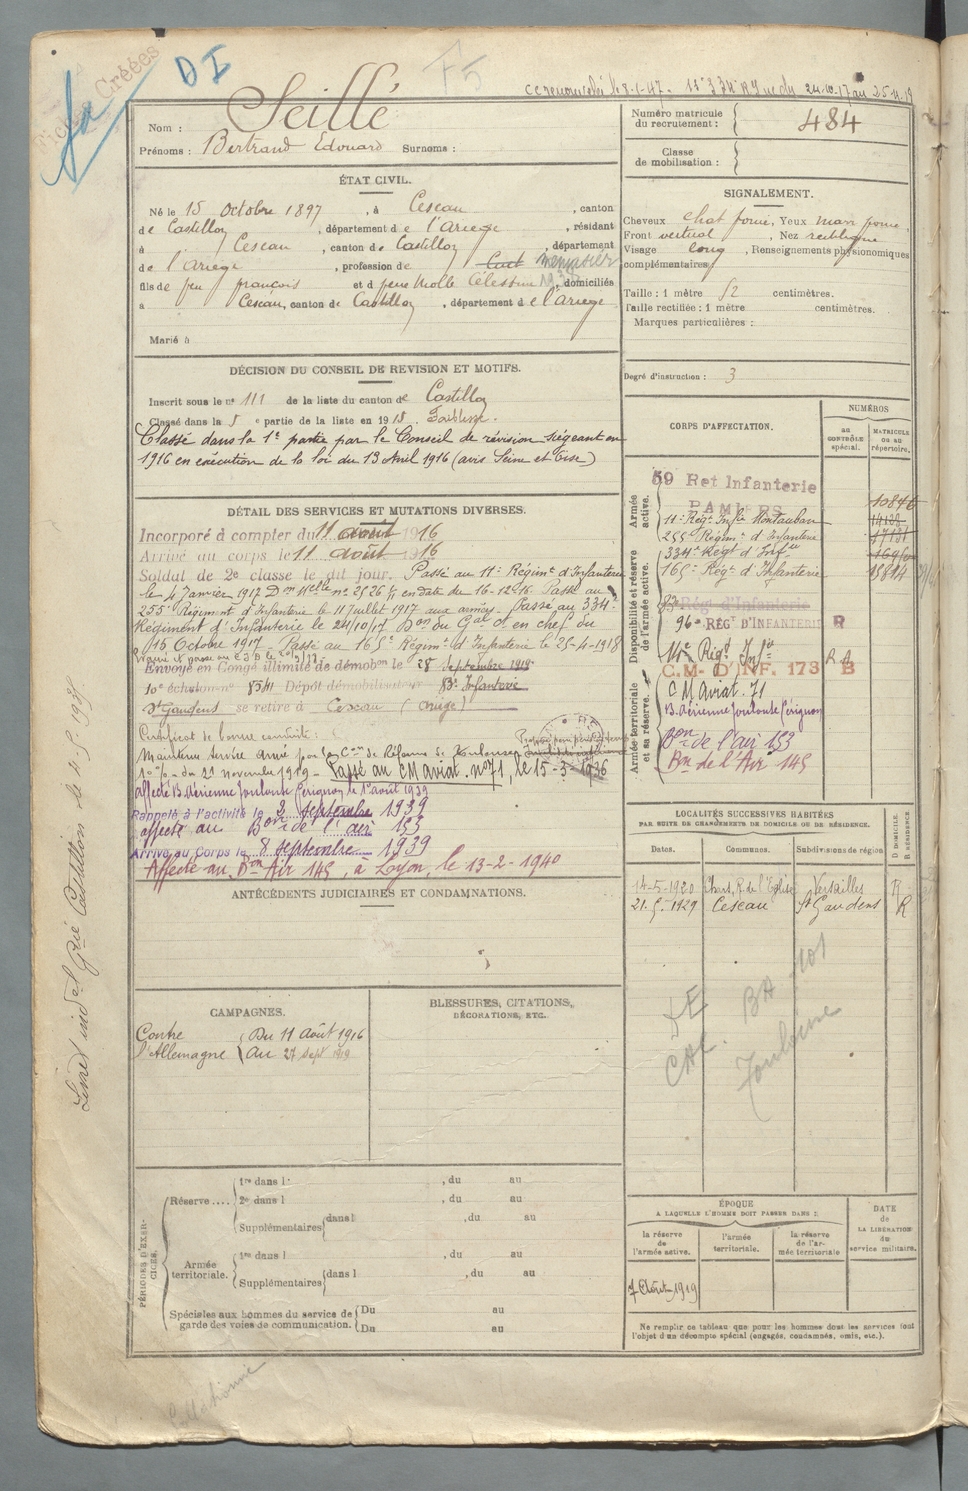 Fiches Créées
DI
F5
Seillé
Nom :
Prénoms : Bertrand Edouard Surnoms :
Numéro matricule du recrutement : 484
Classe de mobilisation :
ÉTAT CIVIL.
Né le 15 Octobre 1897, à Cescau, canton
de Castillon, département de l'Ariège, résidant
à Cescau, canton de Castillon, département
de l'Ariège, profession de Menuisier
fils de feu François et d feue Molle Célestine, domiciliés
à Cescau, canton de Castillon, département de l'Ariège
Marié à
SIGNALEMENT.
Cheveux chat foncé, Yeux marr foncé,
Front vertical, Nez rectiligne
Visage long, Renseignements physionomiques
complémentaires
Taille : 1 mètre 52 centimètres.
Taille rectifiée : 1 mètre centimètres.
Marques particulières :
Degré d'instruction : 3
DÉCISION DU CONSEIL DE REVISION ET MOTIFS.
Inscrit sous le n° 111 de la liste du canton de Castillon
Classé dans la 5 e partie de la liste en 1918 Faiblesse.
Classé dans la 1e partie par le Conseil de révision siégeant en
1916 en exécution de la loi du 13 Avril 1916 (avis Seine et Oise)
DÉTAIL DES SERVICES ET MUTATIONS DIVERSES.
Incorporé à compter du 11 août 1916
Arrivé au corps le 11 août 1916
Soldat de 2e classe le dit jour. Passé au 11e Régimt d'Infanterie
le 4 Janvier 1917 Don Melle no 2526 en date du 16-12-16. Passé au
255e Régiment d'Infanterie le 11 juillet 1917 aux armées. Passé au 334e
Régiment d'Infanterie le 24/10/17 Don du Gal Ct en chef du
16 Octobre 1917. Passé au 165e Régimt d'Infanterie le 25-4-1918
Envoyé en Congé illimité de démobon le 28 Septembre 1919
10e échelon no 8541 Dépôt démobilisateur 83e Infanterie
St Gaudens se retire à Cescau (Ariège)
Certificat de bonne conduite :
Maintenu service armé par la Con de Réforme de Toulouse
10 % - du 21 novembre 1929 - Passé au CM aviat. no 71, le 15-3-1936
affecté B. Aérienne Toulouse Pérignon le 1er août 1939
Rappelé à l'activité le 2 septembre 1939
affecté au Bon de l'air 153
Arrivé au Corps le 8 septembre 1939
Affecté au Bon Air 145, à Lyon, le 13-2-1940
CORPS D'AFFECTATION.
NUMÉROS
AU CONTRÔLE spécial.
MATRICULE OU AU répertoire.
Armée active.
59 Ret Infanterie
PAMIERS
10846
11e Régt Infie Montauban
14138
255e Régimt d'Infanterie
17131
334e Régt d'Infie
165e Régt d'Infanterie
15914
Disponibilité et réserve de l'armée active.
83 Rég d'Infanterie
96e RÉGt D'INFANTERIE R
14e Régt Infie R.A
C.M. D'INF. 173 B
Armée territoriale et sa réserve.
CM Aviat. 71
B. Aérienne Toulouse Pérignon
Bon de l'air 153
Bn de l'Air 145
LOCALITÉS SUCCESSIVES HABITÉES
PAR SUITE DE CHANGEMENTS DE DOMICILE OU DE RÉSIDENCE.
Dates. Communes. Subdivisions de région D. DOMICILE. R. RÉSIDENCE
14-5-1920 R. de l'Eglise Versailles R
21-5-1929 Cescau St Gaudens R
DE BA 101
CAL. Toulouse
ANTÉCÉDENTS JUDICIAIRES ET CONDAMNATIONS.
CAMPAGNES.
Contre l'Allemagne
Du 11 Août 1916
au 27 Sept 1919
BLESSURES, CITATIONS,
DÉCORATIONS, ETC.
PÉRIODES D'EXERCICES.
Réserve....
1re dans l , du au
2e dans l , du au
Supplémentaires dans l , du au
Armée territoriale.
1re dans l , du au
Supplémentaires dans l , du au
Spéciales aux hommes du service de garde des voies de communication.
Du au
Du au
ÉPOQUE
A LAQUELLE L'HOMME DOIT PASSER DANS :
la réserve de l'armée active.
l'armée territoriale.
la réserve de l'armée territoriale
DATE de LA LIBÉRATION du service militaire.
7 Août 1919
Ne remplir ce tableau que pour les hommes dont les services font
l'objet d'un décompte spécial (engagés, condamnés, omis, etc.).